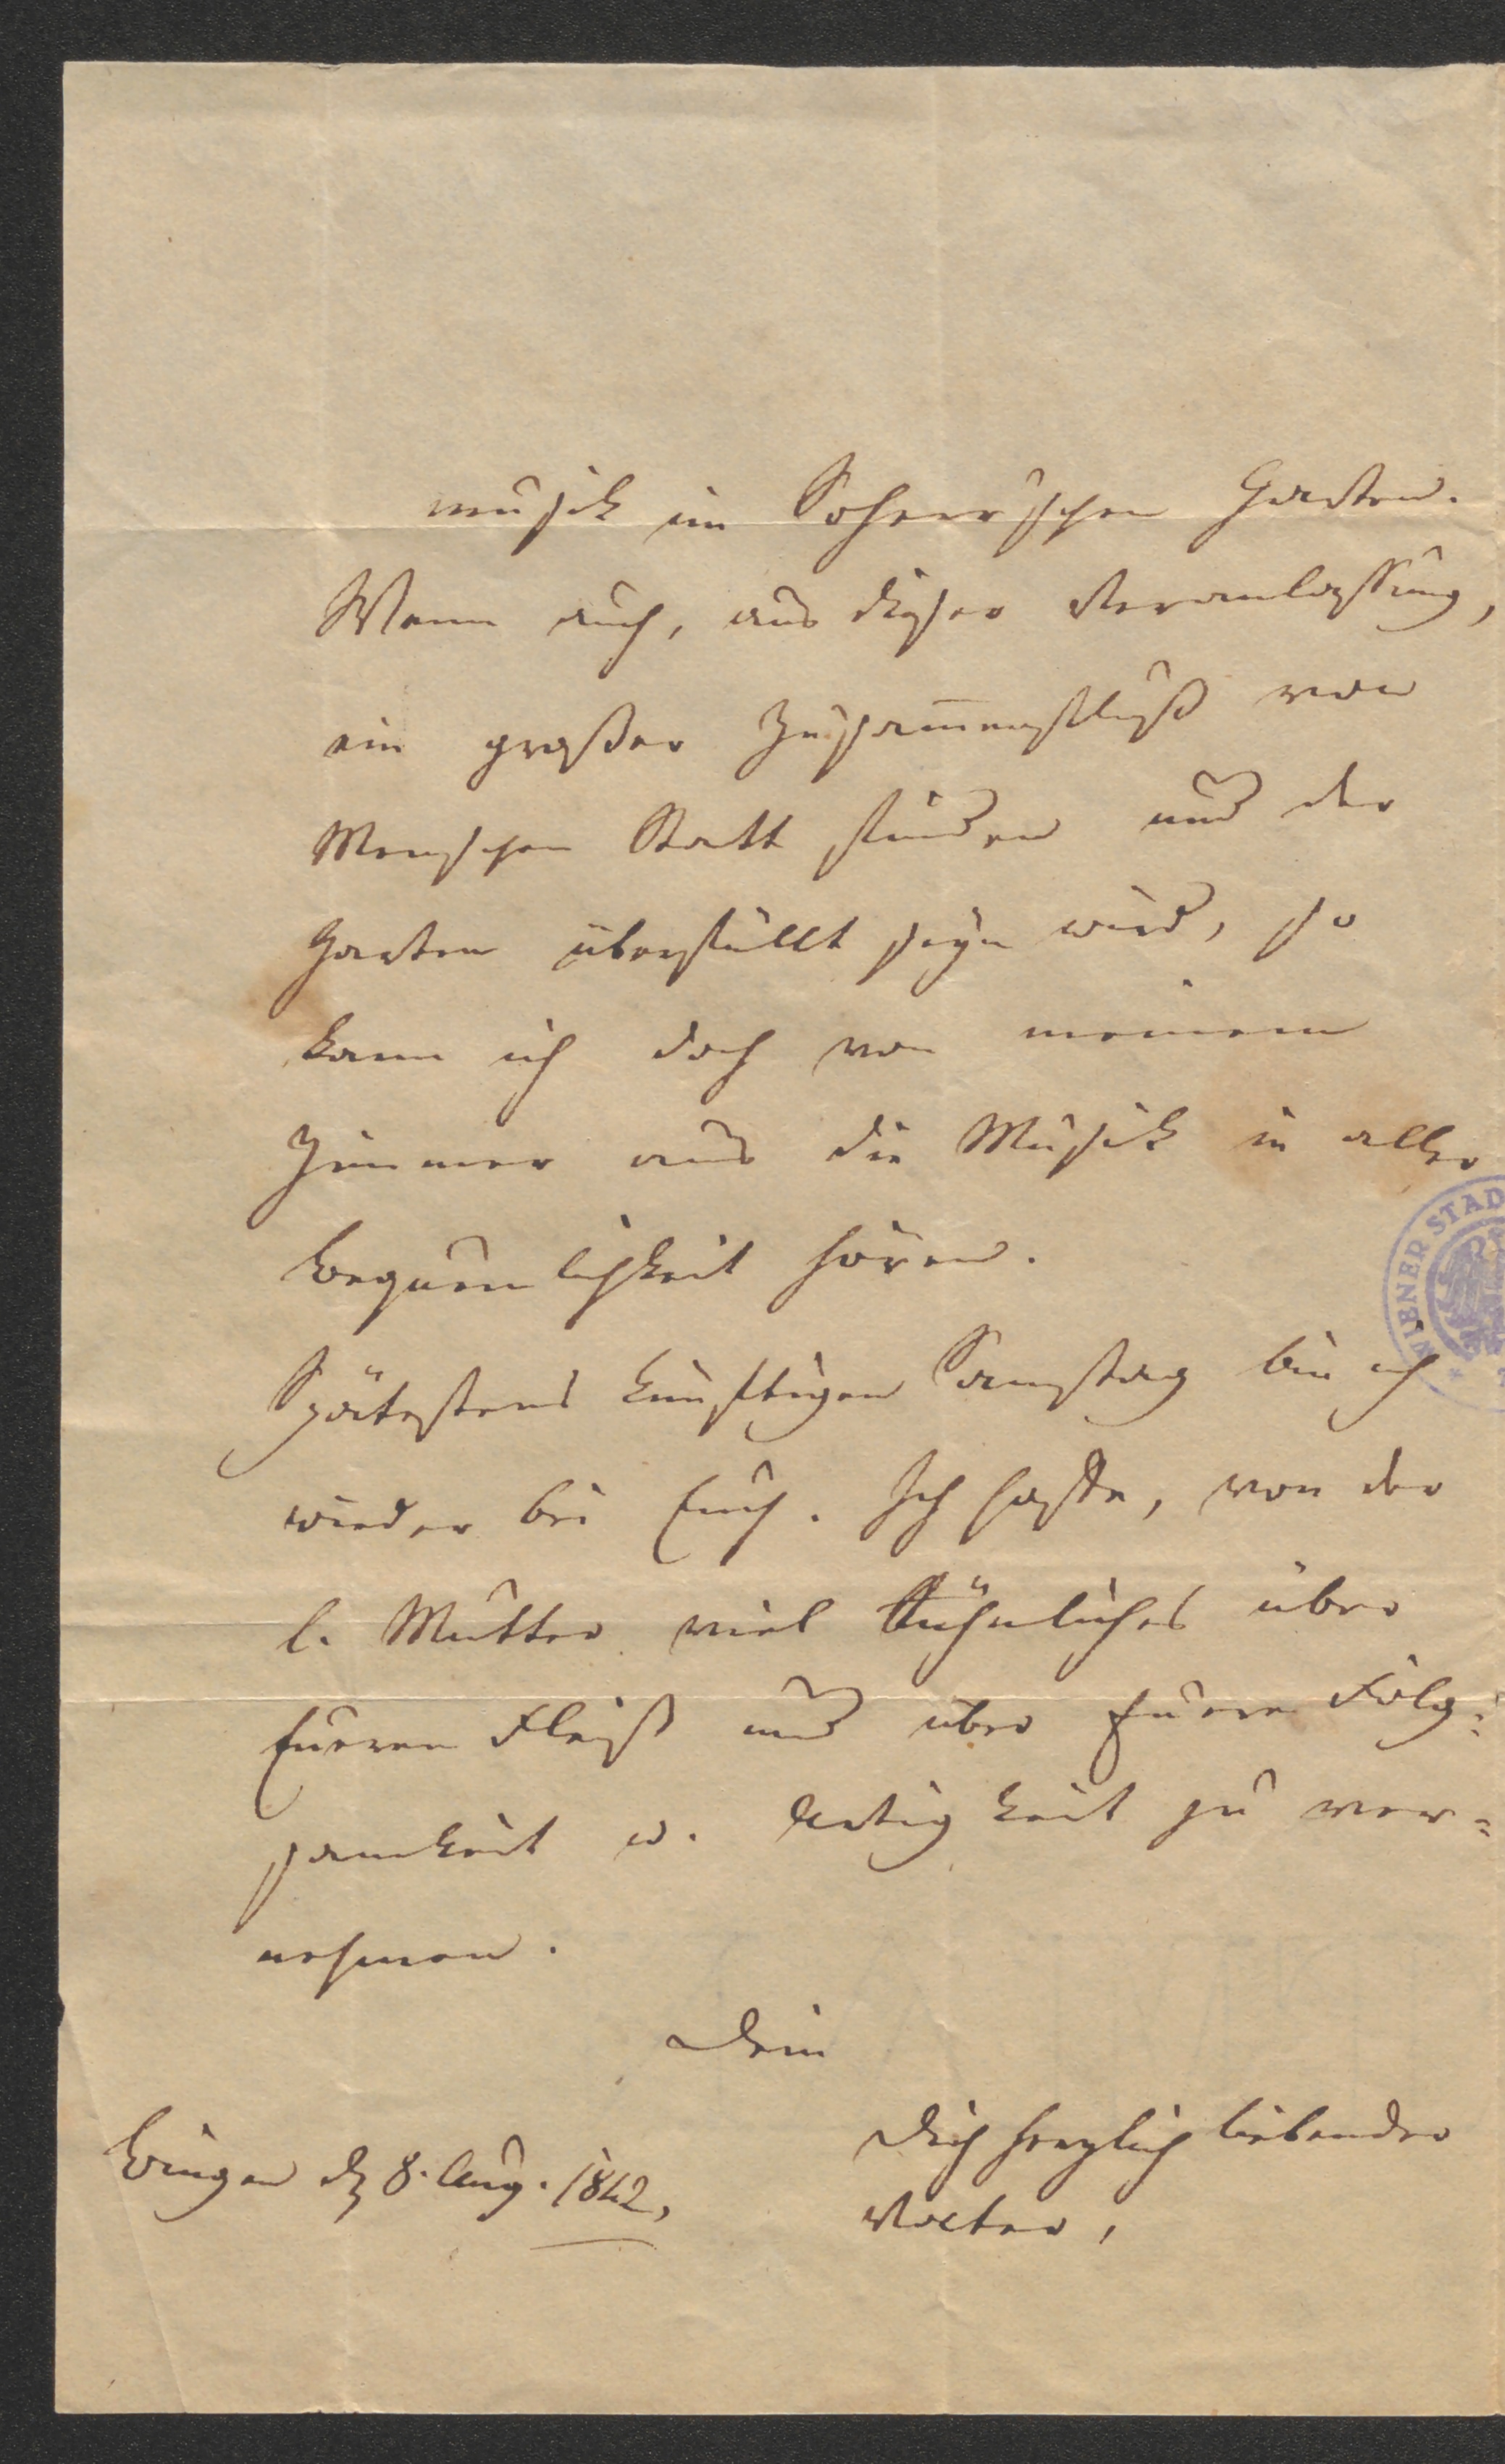 musik im Soherr'schen Garten.
Wenn auch, aus dieser Veranlassung,
ein großer Zusam̅enfluß von
Menschen Statt finden und der
Garten überfüllt seyn wird, so
kann ich doch von meinem
Zimmer aus die Musik in aller
Bequemlichkeit hören.
Spätestens künftigen Samstag bin ich
wieder bei Euch. Ich hoffe, von der
l. Mutter viel Rühmliches über
Eueren Fleiß und über Euere Folg-
samkeit u. Artigkeit zu ver=
nehmen.
Dein
Dich herzlich liebender
Vater,
Bingen d 8. Aug. 1842,
WIENER STAD